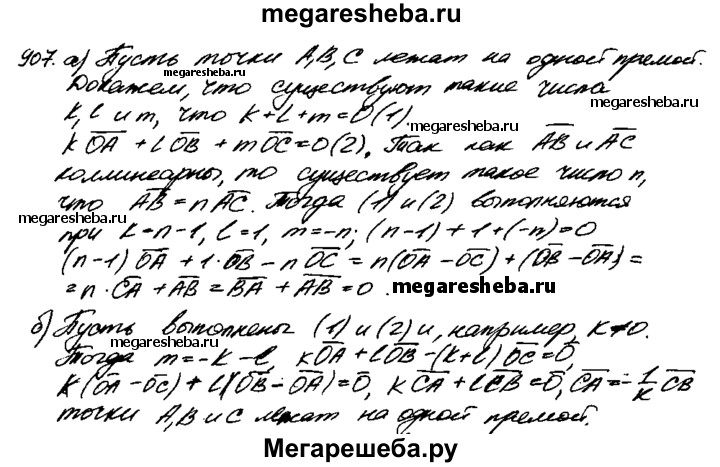 megaresheba.ru
907. а) Пусть точки A, B, C лежат на одной прямой.
megaresheba.ru
Докажем, что существуют такие числа
megaresheba.ru
k, l и m, что k + l + m = 0 (1).
megaresheba.ru
k OA + l OB + m OC = 0 (2). Так как AB и AC
коллинеарны, то существует такое число n,
что AB = n AC. Тогда (1) и (2) выполняются
megaresheba.ru
при k = n - 1, l = 1, m = -n; (n - 1) + 1 + (-n) = 0
(n - 1) OA + 1 · OB - n OC = n(OA - OC) + (OB - OA) =
= n · CA + AB = BA + AB = 0.
megaresheba.ru
б) Пусть выполнены (1) и (2) и, например, k ≠ 0.
megaresheba.ru
Тогда m = -k - l, k OA + l OB - (k + l) OC = 0,
k(OA - OC) + l(OB - OA) = 0, k CA + l CB = 0, CA = -1/k CB
точки A, B и C лежат на одной прямой.
Мегарешеба.ру